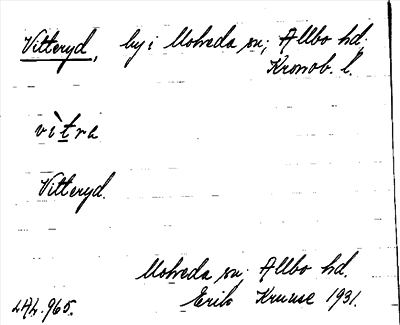 Vitteryd, by i Moheda sn; Allbo hd.
Kronob. l.
vìtra
Vitteryd.
Moheda sn; Allbo hd.
LAL. 965. Erik Kruuse 1931.